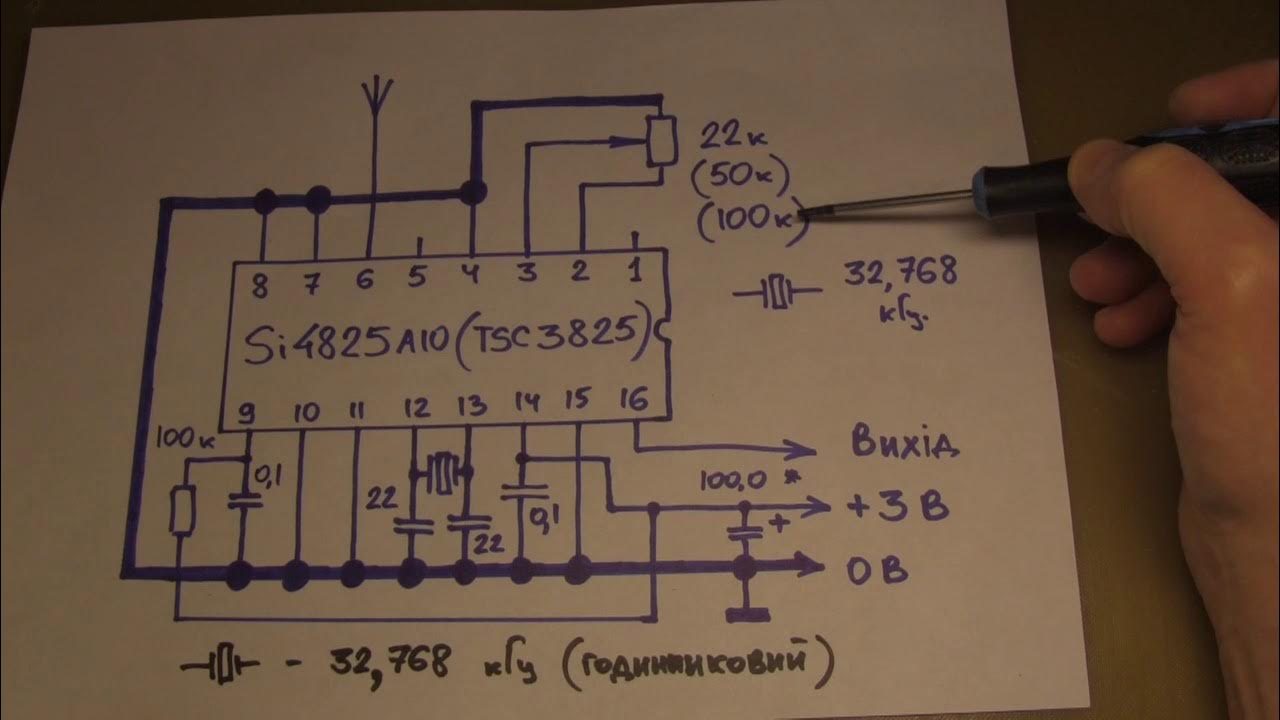 22к
(50к)
(100к)
8 7 6 5 4 3 2 1
32,768
кГц.
Si4825A10 (TSC3825)
9 10 11 12 13 14 15 16
100к
0,1
22
22
0,1
Вихід
100,0 *
+
+3 В
0 В
- 32,768 кГц (годинниковий)